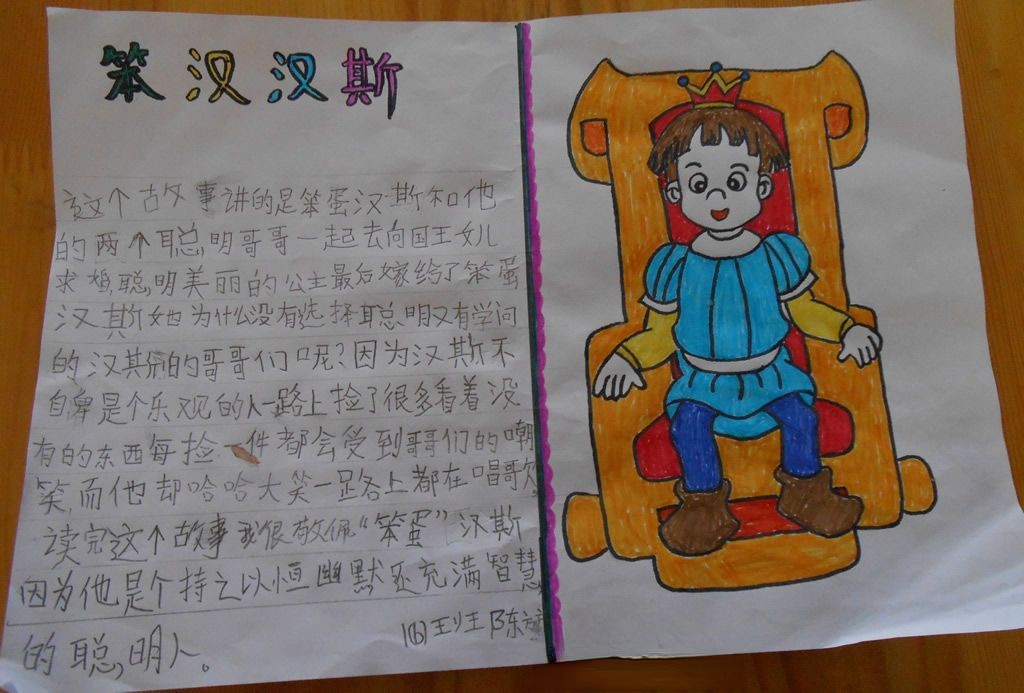 笨汉汉斯
这个故事讲的是笨蛋汉斯和他
的两个聪明哥哥一起去向国王女儿
求婚,聪明美丽的公主最后嫁给了笨蛋
汉斯她为什么没有选择聪明又有学问
的汉斯的哥哥们呢?因为汉斯不
自卑是个乐观的人一路上捡了很多看着没
有的东西每捡一件都会受到哥哥们的嘲
笑,而他却哈哈大笑一路上都在唱歌
读完这个故事我很敬佩“笨蛋”汉斯
因为他是个持之以恒幽默还充满智慧
的聪明人。